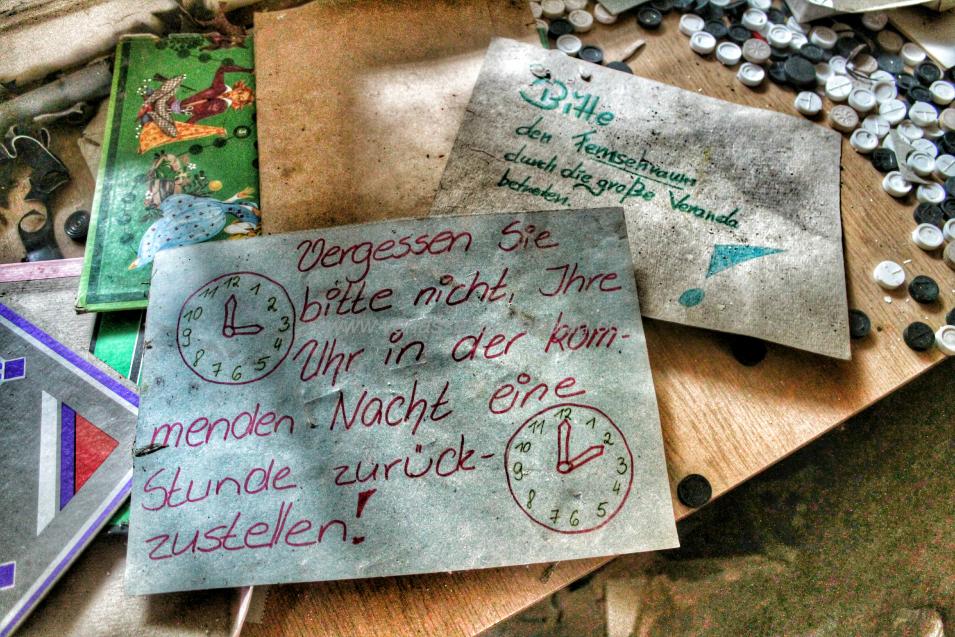 Bitte
den Fernsehraum
durch die große Veranda
betreten.
Vergessen Sie
bitte nicht, Ihre
Uhr in der kom-
menden Nacht eine
Stunde zurück-
zustellen!
12
1
2
3
4
5
6
7
8
9
10
11
12
1
2
3
4
5
6
7
8
9
10
11